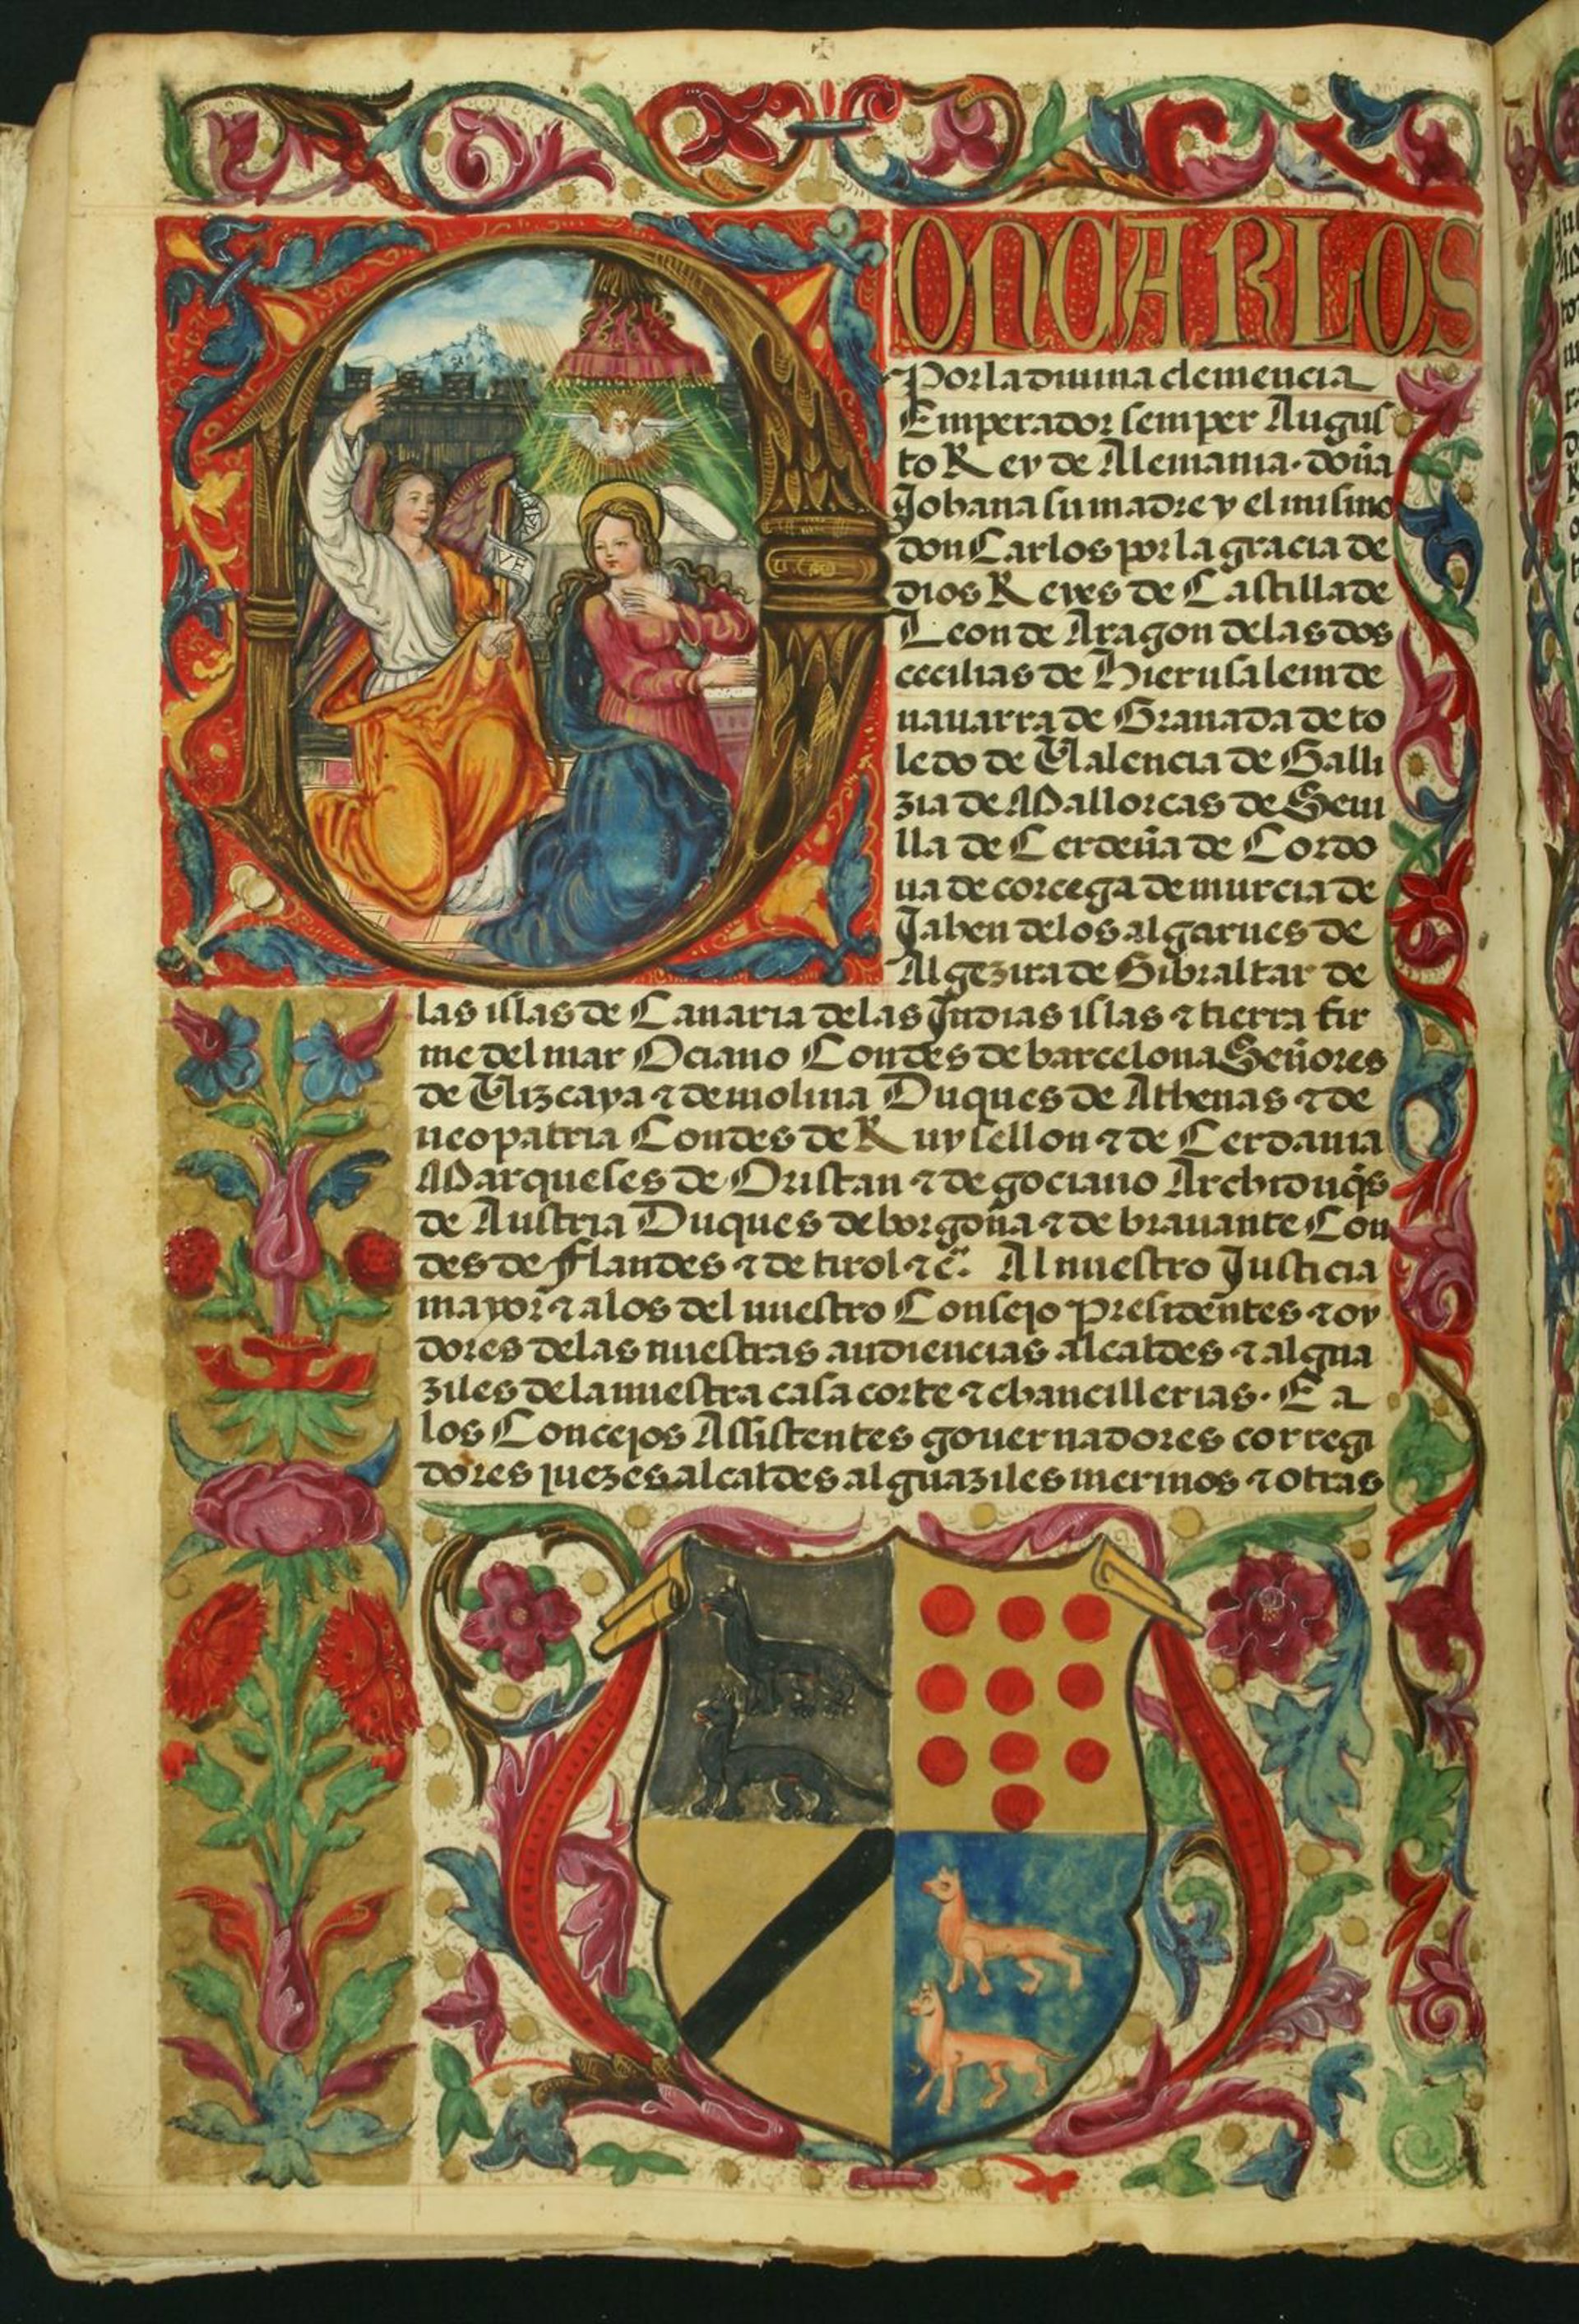 DON CARLOS
Por la diuina clemencia
Emperador semper Augus
to Rey de Alemania. doña
Johana su madre y el mismo
don Carlos por la gracia de
dios Reyes de Castilla de
Leon de Aragon de las dos
cecilias de Hierusalem de
nauarra de Granada de to
ledo de Valencia de Galli
zia de Mallorcas de Seui
lla de Cerdeña de Cordo
ua de corcega de murcia de
Jahen de los algarues de
Algezira de Gibraltar de
las islas de Canaria de las Jndias islas ⁊ tierra fir
me del mar Ociano Condes de barcelona Señores
de Vizcaya ⁊ de molina Duques de Athenas ⁊ de
neopatria Condes de Ruysellon ⁊ de Cerdania
Marqueses de Oristan ⁊ de gociano Archiduq̃s
de Austria Duques de borgoña ⁊ de brauante Con
des de flandes ⁊ de tirol ⁊ cͣ. Al nuestro Justicia
mayor ⁊ a los del nuestro Consejo presidentes ⁊ oy
dores de las nuestras audiencias alcaldes ⁊ algua
ziles de la nuestra casa corte ⁊ chancillerias. E a
los Concejos Assistentes gouernadores corregi
dores juezes alcaldes alguaziles merinos ⁊ otras